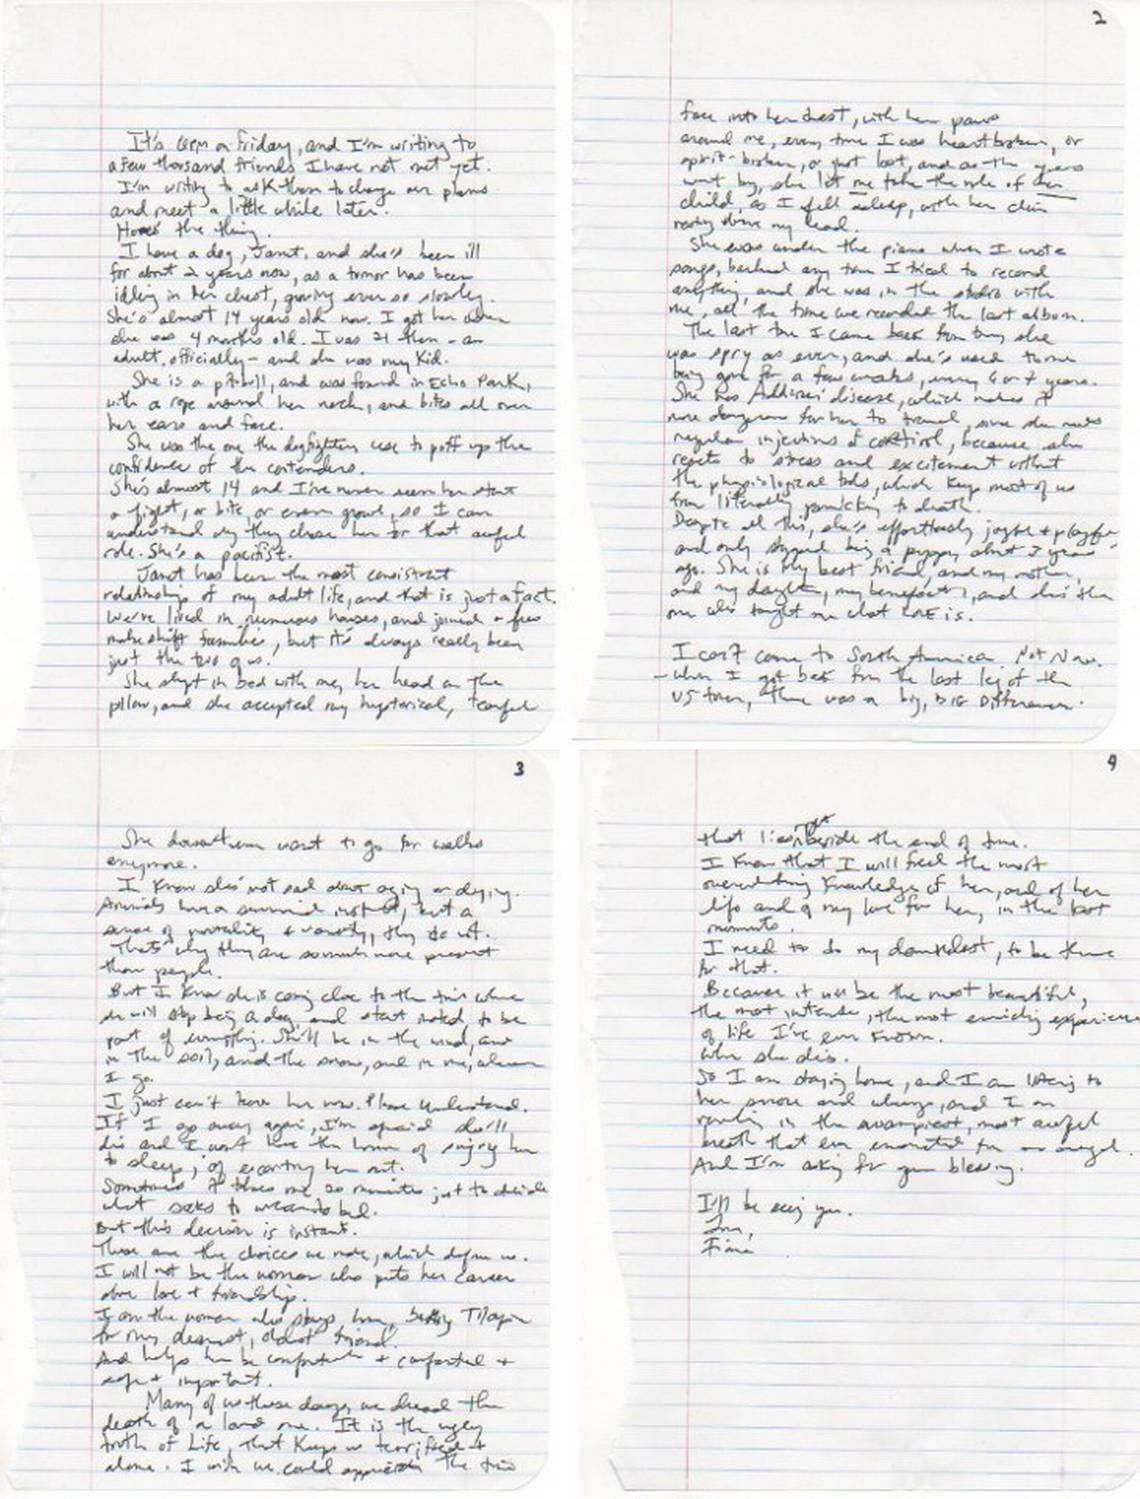 It's 6pm on Friday, and I'm writing to
a few thousand friends I have not met yet.
I'm writing to ask them to change our plans
and meet a little while later.
Here's the thing.
I have a dog, Janet, and she's been ill
for about 2 years now, as a tumor has been
idling in her chest, growing ever so slowly.
She's almost 14 years old now. I got her when
she was 4 months old. I was 21 then - an
adult, officially - and she was my kid.
She is a pitbull, and was found in Echo Park,
with a rope around her neck, and bites all over
her ears and face.
She was the one the dogfighters use to puff up the
confidence of the contenders.
She's almost 14 and I've never seen her start
a fight, or bite, or even growl, so I can
understand why they chose her for that awful
role. She's a pacifist.
Janet has been the most consistent
relationship of my adult life, and that is just a fact.
We've lived in numerous houses, and joined a few
makeshift families, but it's always really been
just the two of us.
She slept in bed with me, her head on the
pillow, and she accepted my hysterical, tearful
2
face into her chest, with her paws
around me, every time I was heartbroken, or
spirit-broken, or just lost, and as the years
went by, she let me take the role of her
child, as I fell asleep, with her chin
resting above my head.
She was under the piano when I wrote
songs, barked any time I tried to record
anything, and she was in the studio with
me, all the time we recorded the last album.
The last time I came back from tour, she
was spry as ever, and she's used to me
being gone for a few weeks, every 6 or 7 years.
She has Addison's disease, which makes it
more dangerous for her to travel, since she needs
regular injections of cortisol, because she
reacts to stress and excitement without
the physiological tools, which keep most of us
from literally panicking to death.
Despite all this, she's effortlessly joyful + playful,
and only stopped being a puppy about 3 years
ago. She is my best friend, and my mother,
and my daughter, my benefactor, and she's the
one who taught me what LOVE is.
I can't come to South America. Not Now.
- When I got back from the last leg of the
US tour, there was a big, BIG Difference.
3
She doesn't even want to go for walks
anymore.
I know she's not sad about aging or dying.
Animals have a survival instinct, but a
sense of mortality + vanity, they do not.
That's why they are so much more present
than people.
But I know she is coming close to the time where
she will stop being a dog, and start instead to be
part of everything. She'll be in the wind, and
in the soil, and the snow, and in me, wherever
I go.
I just can't leave her now. Please understand.
If I go away again, I'm afraid she'll
die and I won't have the honor of singing her
to sleep, of escorting her out.
Sometimes it takes me 20 minutes just to decide
what socks to wear to bed.
But this decision is instant.
These are the choices we make, which define us.
I will not be the woman who puts her career
above love + friendship.
I am the woman who stays home, baking Tilapia
for my dearest, oldest friend.
And helps her be comfortable + comforted +
safe + important.
Many of us these days, we dread the
death of a loved one. It is the ugly
truth of Life, that Keeps us terrified +
alone. I wish we could appreciate the time
4
that lies right beside the end of time.
I Know that I will feel the most
overwhelming Knowledge of her, and of her
life and of my love for her, in the last
moments.
I need to do my damnedest, to be there
for that.
Because it will be the most beautiful,
the most intense, the most enriching experience
of life I've ever known.
When she dies.
So I am staying home, and I am listening to
her snore and wheeze, and I am
reveling in the swampiest, most awful
breath that ever emanated from an angel.
And I'm asking for your blessing.
I'll be seeing you.
Love,
Fiona